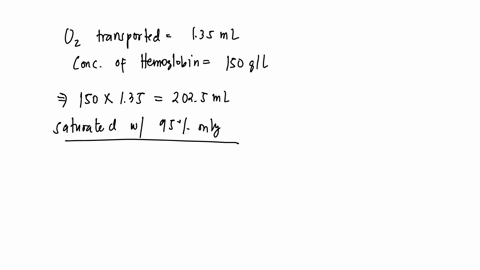 O₂ transported = 1.35 mL
Conc. of Hemoglobin = 150 g/L
⇒ 150 × 1.35 = 202.5 mL
saturated w/ 95% only